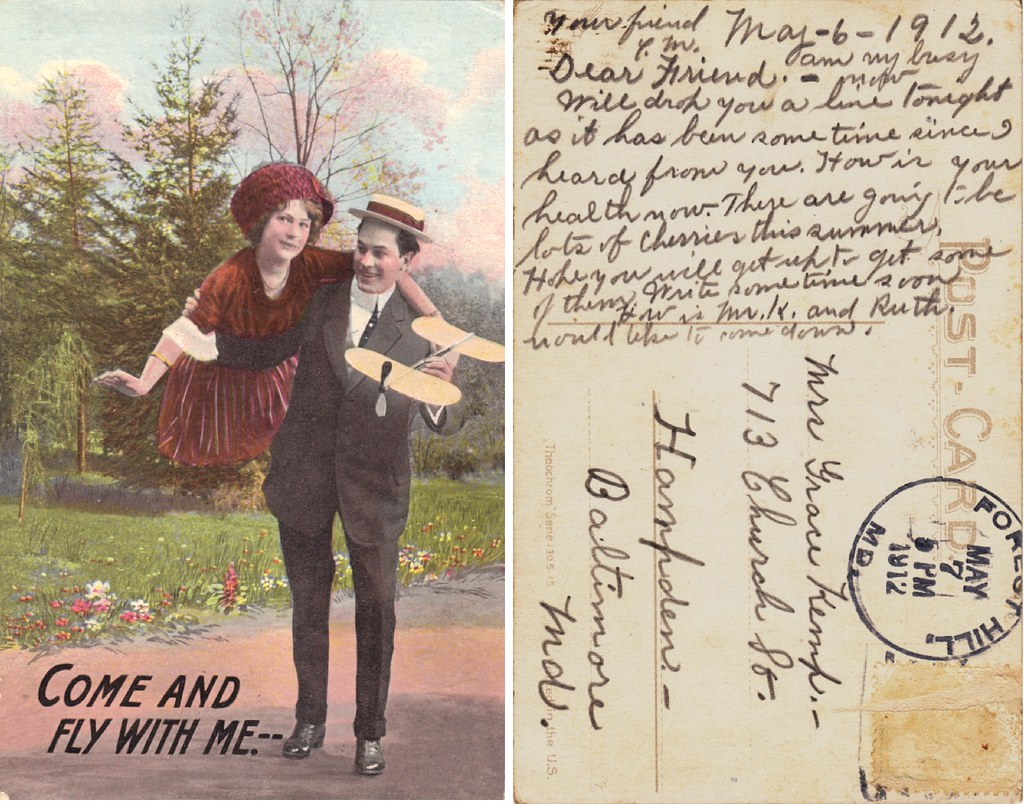 COME AND
FLY WITH ME.--
Your friend
May-6-1912.
am
busy
now
Dear Friend.-
Will drop you a line tonight
as it has been some time since I
heard from you. How is your
health now. There are going to be
lots of Cherries this summer.
Hope you will get up to get some
of them. Write some time soon
How is Mr. K. and Ruth.
would like to come down.
POST-CARD
Mrs Grace Kemp.-
713 Church St.
Hampden.-
Baltimore
Md.
FOREST HILL.
MAY
7
PM
1912
MD.
"Theochrom" Serie
in the U.S.